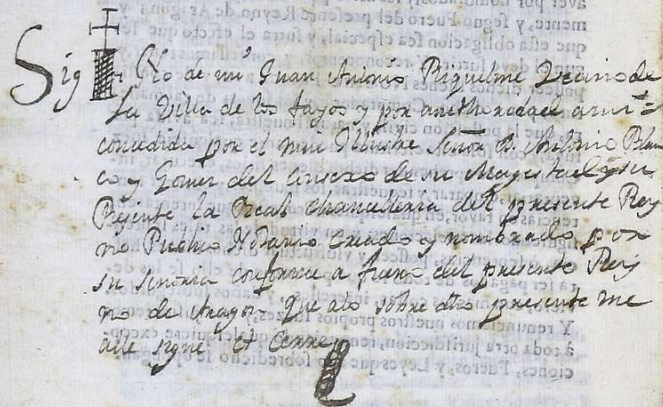 Sig no de mi Juan Antonio Riquelme Vecino de
la Villa de los fayos y por authoridad a mi
concedida por el mui Illustre Señor D. Antonio Blan
co y Gomez del consejo de su Magestad y su
Rejente la Real chancilleria del presente Rey
no Publico Notario Creado y nombrado por
su señoria conforme a fueros del presente Rey
no de Aragon Que alo sobre dho presente me
alle signe et Cerre